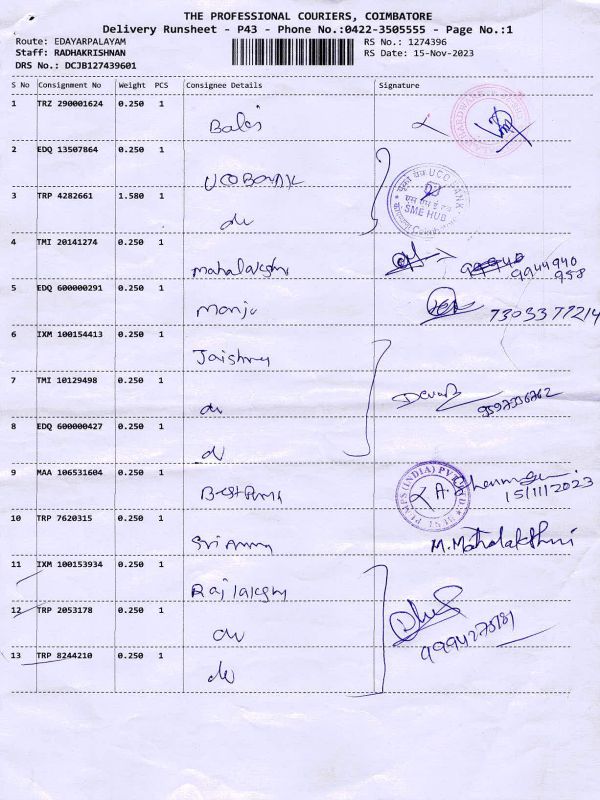 THE PROFESSIONAL COURIERS, COIMBATORE
Delivery Runsheet - P43 - Phone No.:0422-3505555 - Page No.:1
Route: EDAYARPALAYAM RS No.: 1274396
Staff: RADHAKRISHNAN RS Date: 15-Nov-2023
DRS No.: DCJB127439601
S No Consignment No Weight PCS Consignee Details Signature
1 TRZ 290001624 0.250 1 Balaji
2 EDQ 13507864 0.250 1 UCO Bank
3 TRP 4282661 1.580 1 do
UCO BANK
SME HUB
4 TMI 20141274 0.250 1 mahalakshmi 9944940
958
5 EDQ 600000291 0.250 1 Manju 7303377214
6 IXM 100154413 0.250 1
7 TMI 10129498 0.250 1 do
8 EDQ 600000427 0.250 1 do
9 MAA 106531604 0.250 1 Best Pump
PUMPS (INDIA) PVT
15/11/2023
10 TRP 7620315 0.250 1 Sri Amma M. Mahalakshmi
11 IXM 100153934 0.250 1 Rajlakshmi
12 TRP 2053178 0.250 1 do
13 TRP 8244210 0.250 1 do